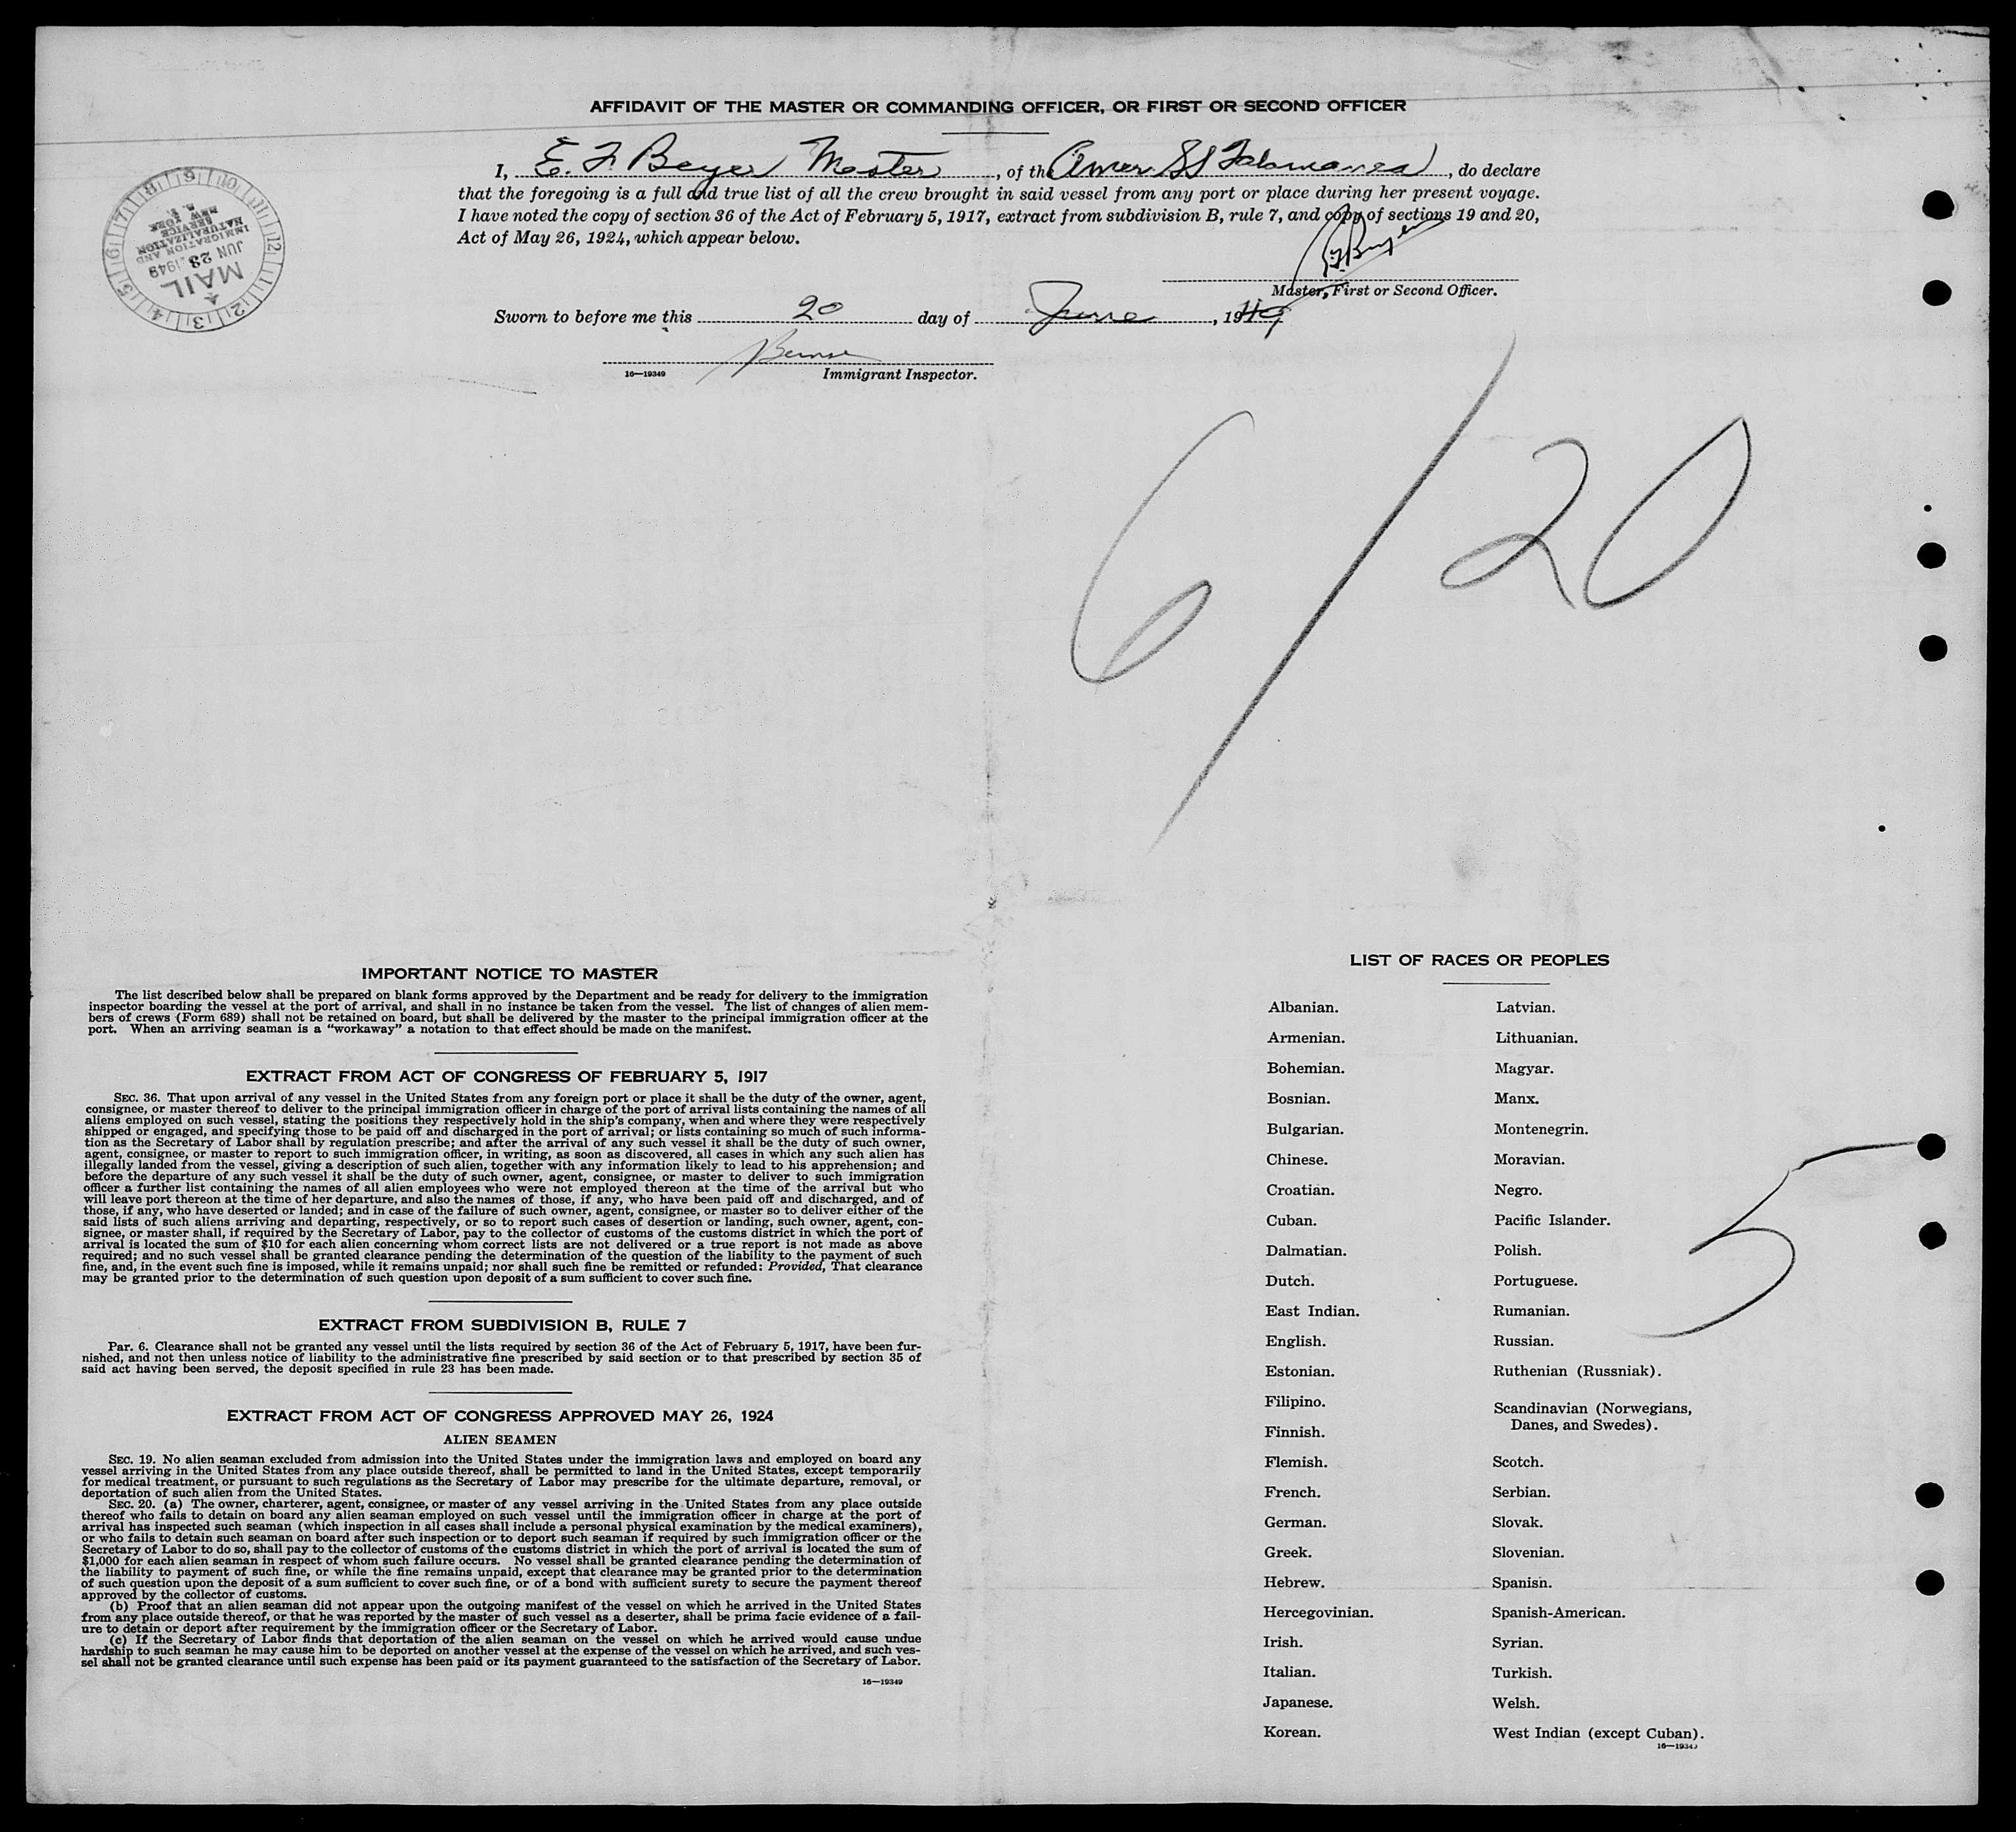 AFFIDAVIT OF THE MASTER OR COMMANDING OFFICER, OR FIRST OR SECOND OFFICER
I, E. F. Beyer Master, of the Amer SS Talamanca, do declare
that the foregoing is a full and true list of all the crew brought in said vessel from any port or place during her present voyage.
I have noted the copy of section 36 of the Act of February 5, 1917, extract from subdivision B, rule 7, and copy of sections 19 and 20,
Act of May 26, 1924, which appear below.
E F Beyer
Master, First or Second Officer.
Sworn to before me this 20 day of June, 1949
16—19349 Immigrant Inspector.
IMMIGRATION AND
NATURALIZATION
SERVICE
NEW YORK
N. Y.
JUN 23 1949
MAIL
1 2 3 4 5 6 7 8 9 10 11 12
6/20
IMPORTANT NOTICE TO MASTER
The list described below shall be prepared on blank forms approved by the Department and be ready for delivery to the immigration
inspector boarding the vessel at the port of arrival, and shall in no instance be taken from the vessel. The list of changes of alien mem-
bers of crews (Form 689) shall not be retained on board, but shall be delivered by the master to the principal immigration officer at the
port. When an arriving seaman is a “workaway” a notation to that effect should be made on the manifest.
EXTRACT FROM ACT OF CONGRESS OF FEBRUARY 5, 1917
SEC. 36. That upon arrival of any vessel in the United States from any foreign port or place it shall be the duty of the owner, agent,
consignee, or master thereof to deliver to the principal immigration officer in charge of the port of arrival lists containing the names of all
aliens employed on such vessel, stating the positions they respectively hold in the ship's company, when and where they were respectively
shipped or engaged, and specifying those to be paid off and discharged in the port of arrival; or lists containing so much of such informa-
tion as the Secretary of Labor shall by regulation prescribe; and after the arrival of any such vessel it shall be the duty of such owner,
agent, consignee, or master to report to such immigration officer, in writing, as soon as discovered, all cases in which any such alien has
illegally landed from the vessel, giving a description of such alien, together with any information likely to lead to his apprehension; and
before the departure of any such vessel it shall be the duty of such owner, agent, consignee, or master to deliver to such immigration
officer a further list containing the names of all alien employees who were not employed thereon at the time of the arrival but who
will leave port thereon at the time of her departure, and also the names of those, if any, who have been paid off and discharged, and of
those, if any, who have deserted or landed; and in case of the failure of such owner, agent, consignee, or master so to deliver either of the
said lists of such aliens arriving and departing, respectively, or so to report such cases of desertion or landing, such owner, agent, con-
signee, or master shall, if required by the Secretary of Labor, pay to the collector of customs of the customs district in which the port of
arrival is located the sum of $10 for each alien concerning whom correct lists are not delivered or a true report is not made as above
required; and no such vessel shall be granted clearance pending the determination of the question of the liability to the payment of such
fine, and, in the event such fine is imposed, while it remains unpaid; nor shall such fine be remitted or refunded: Provided, That clearance
may be granted prior to the determination of such question upon deposit of a sum sufficient to cover such fine.
EXTRACT FROM SUBDIVISION B, RULE 7
Par. 6. Clearance shall not be granted any vessel until the lists required by section 36 of the Act of February 5, 1917, have been fur-
nished, and not then unless notice of liability to the administrative fine prescribed by said section or to that prescribed by section 35 of
said act having been served, the deposit specified in rule 23 has been made.
EXTRACT FROM ACT OF CONGRESS APPROVED MAY 26, 1924
ALIEN SEAMEN
SEC. 19. No alien seaman excluded from admission into the United States under the immigration laws and employed on board any
vessel arriving in the United States from any place outside thereof, shall be permitted to land in the United States, except temporarily
for medical treatment, or pursuant to such regulations as the Secretary of Labor may prescribe for the ultimate departure, removal, or
deportation of such alien from the United States.
SEC. 20. (a) The owner, charterer, agent, consignee, or master of any vessel arriving in the United States from any place outside
thereof who fails to detain on board any alien seaman employed on such vessel until the immigration officer in charge at the port of
arrival has inspected such seaman (which inspection in all cases shall include a personal physical examination by the medical examiners),
or who fails to detain such seaman on board after such inspection or to deport such seaman if required by such immigration officer or the
Secretary of Labor to do so, shall pay to the collector of customs of the customs district in which the port of arrival is located the sum of
$1,000 for each alien seaman in respect of whom such failure occurs. No vessel shall be granted clearance pending the determination of
the liability to payment of such fine, or while the fine remains unpaid, except that clearance may be granted prior to the determination
of such question upon the deposit of a sum sufficient to cover such fine, or of a bond with sufficient surety to secure the payment thereof
approved by the collector of customs.
(b) Proof that an alien seaman did not appear upon the outgoing manifest of the vessel on which he arrived in the United States
from any place outside thereof, or that he was reported by the master of such vessel as a deserter, shall be prima facie evidence of a fail-
ure to detain or deport after requirement by the immigration officer or the Secretary of Labor.
(c) If the Secretary of Labor finds that deportation of the alien seaman on the vessel on which he arrived would cause undue
hardship to such seaman he may cause him to be deported on another vessel at the expense of the vessel on which he arrived, and such ves-
sel shall not be granted clearance until such expense has been paid or its payment guaranteed to the satisfaction of the Secretary of Labor.
16—19349
LIST OF RACES OR PEOPLES
Albanian.
Armenian.
Bohemian.
Bosnian.
Bulgarian.
Chinese.
Croatian.
Cuban.
Dalmatian.
Dutch.
East Indian.
English.
Estonian.
Filipino.
Finnish.
Flemish.
French.
German.
Greek.
Hebrew.
Hercegovinian.
Irish.
Italian.
Japanese.
Korean.
Latvian.
Lithuanian.
Magyar.
Manx.
Montenegrin.
Moravian.
Negro.
Pacific Islander.
Polish.
Portuguese.
Rumanian.
Russian.
Ruthenian (Russniak).
Scandinavian (Norwegians,
Danes, and Swedes).
Scotch.
Serbian.
Slovak.
Slovenian.
Spanish.
Spanish-American.
Syrian.
Turkish.
Welsh.
West Indian (except Cuban).
16—19349
5